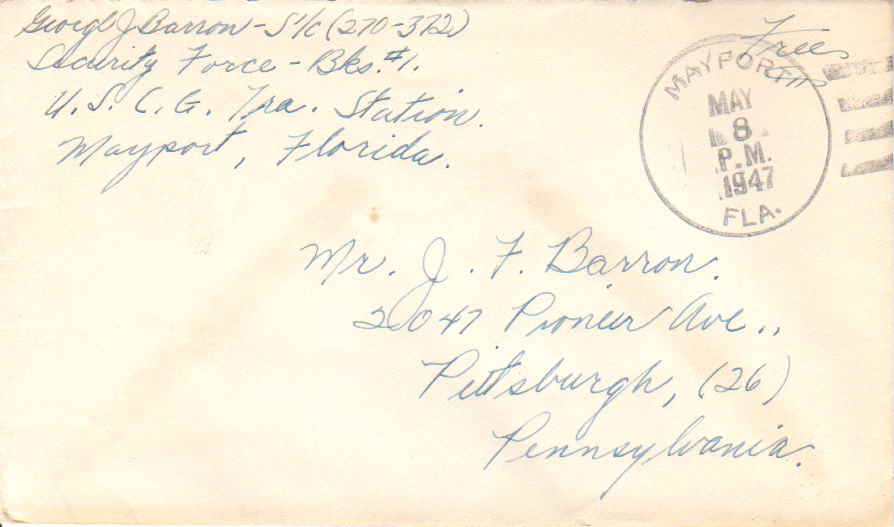 George J Barron - S1/c (270-372)
Security Force - Bks. #1.
U. S. C. G. Tra. Station.
Mayport, Florida.
Free
MAYPORT
MAY
8
P.M.
1947
FLA.
Mr. J. F. Barron.
2047 Pioneer Ave.,
Pittsburgh, (26)
Pennsylvania.